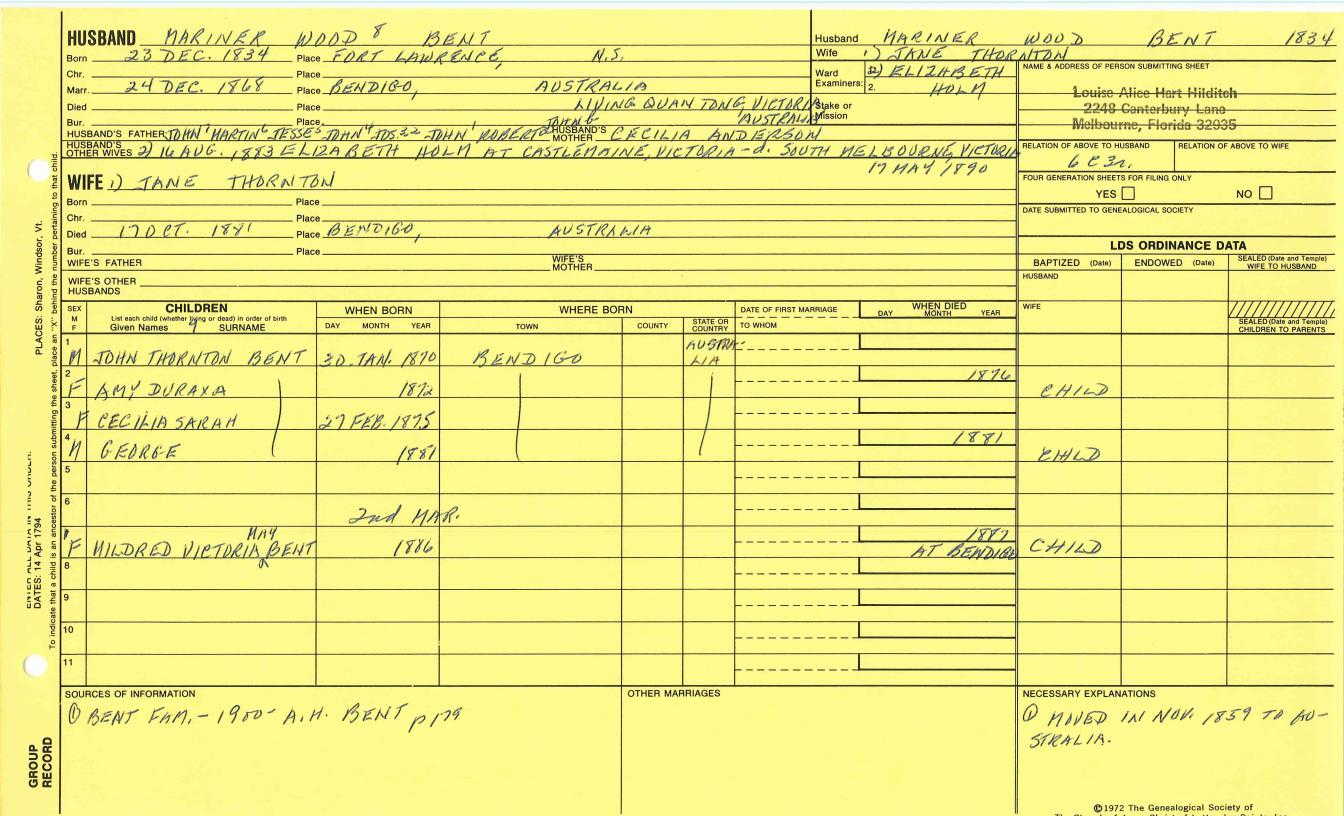 HUSBAND MARINER WOOD 8 BENT
Born 23 DEC. 1834 Place FORT LAWRENCE, N.S.
Chr. Place
Marr. 24 DEC. 1868 Place BENDIGO, AUSTRALIA
Died Place LIVING QUAN TONG, VICTORIA
Bur. Place AUSTRALIA
HUSBAND'S FATHER JOHN MARTIN JESSE JOHN JOS JOHN ROBERT JOHN HUSBAND'S MOTHER CECILIA ANDERSON
HUSBAND'S OTHER WIVES 2) 16 AUG. 1883 ELIZABETH HOLM AT CASTLEMAINE, VICTORIA - d. SOUTH MELBOURNE, VICTORIA
17 MAY 1890
WIFE 1) JANE THORNTON
Born Place
Chr. Place
Died 17 OCT. 1881 Place BENDIGO, AUSTRALIA
Bur. Place
WIFE'S FATHER WIFE'S MOTHER
WIFE'S OTHER HUSBANDS
Husband MARINER WOOD BENT 1834
Wife 1) JANE THORNTON
Ward Examiners: 2) ELIZABETH
2. HOLM
Stake or Mission
NAME & ADDRESS OF PERSON SUBMITTING SHEET
Louise Alice Hart Hilditch
2248 Canterbury Lane
Melbourne, Florida 32935
RELATION OF ABOVE TO HUSBAND RELATION OF ABOVE TO WIFE
6 C 3r.
FOUR GENERATION SHEETS FOR FILING ONLY
YES NO
DATE SUBMITTED TO GENEALOGICAL SOCIETY
LDS ORDINANCE DATA
BAPTIZED (Date) ENDOWED (Date) SEALED (Date and Temple) WIFE TO HUSBAND
HUSBAND
WIFE
SEALED (Date and Temple) CHILDREN TO PARENTS
SEX M F CHILDREN WHEN BORN WHERE BORN DATE OF FIRST MARRIAGE WHEN DIED
List each child (whether living or dead) in order of birth
Given Names 9 SURNAME DAY MONTH YEAR TOWN COUNTY STATE OR COUNTRY TO WHOM DAY MONTH YEAR
1 M JOHN THORNTON BENT 30 JAN. 1870 BENDIGO AUSTRA-LIA
2 F AMY DURAXA 1872 1876 CHILD
3 F CECILIA SARAH 27 FEB. 1875
4 M GEORGE 1881 1881 CHILD
5
6 2nd MAR.
F MILDRED VICTORIA MAY BENT 1886 1887 AT BENDIGO CHILD
8
9
10
11
SOURCES OF INFORMATION
① BENT FAM. - 1900 - A.H. BENT p 179
OTHER MARRIAGES
NECESSARY EXPLANATIONS
① MOVED IN NOV. 1859 TO AU-
STRALIA.
©1972 The Genealogical Society of
PLACES: Sharon, Windsor, Vt.
ENTER ALL DATA IN THIS ORDER:
DATES: 14 Apr 1794
To indicate that a child is an ancestor of the person submitting the sheet, place an "X" behind the number pertaining to that child.
GROUP RECORD